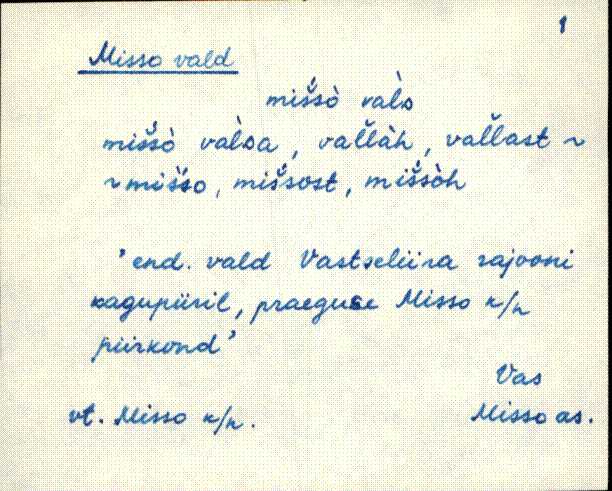 1
Misso vald
mišsò val̀s
mišsò val̀sa, vallàh, vallast ~
~ mišso, mišsost, mišsòh
'end. vald Vastseliina rajooni
kagupiiril, praeguse Misso k/n
piirkond'
Vas
vt. Misso k/n. Misso as.